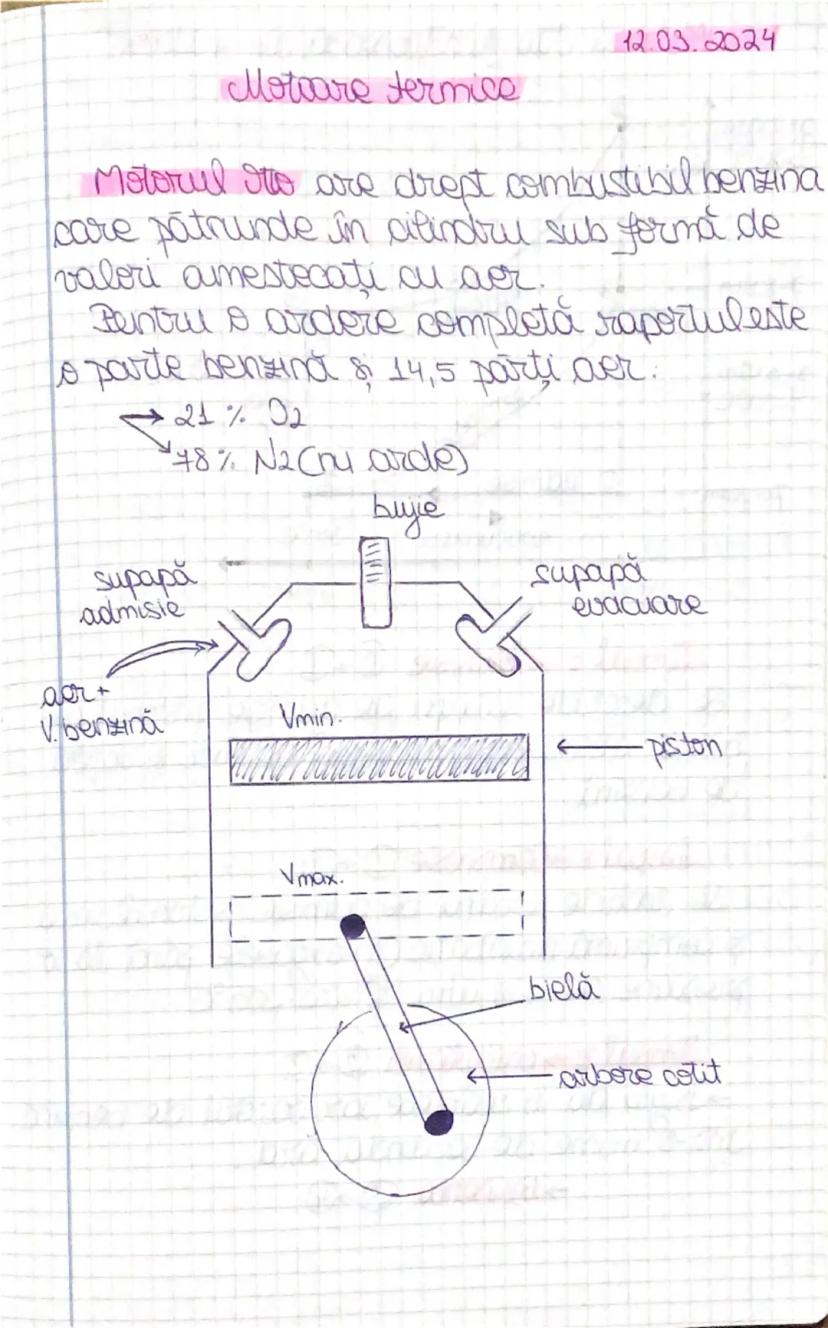 12.03.2024
Motoare termice
Motorul Otto are drept combustibil benzina
care pătrunde în cilindru sub formă de
valori amestecați cu aer.
Pentru o ardere completă raportul este
o parte benzină și 14,5 părți aer.
→ 21 % O2
↘ 78 % N2 (nu arde)
bujie
supapă
admisie
supapă
evacuare
aer +
V. benzină
Vmin.
piston
Vmax.
bielă
arbore cotit